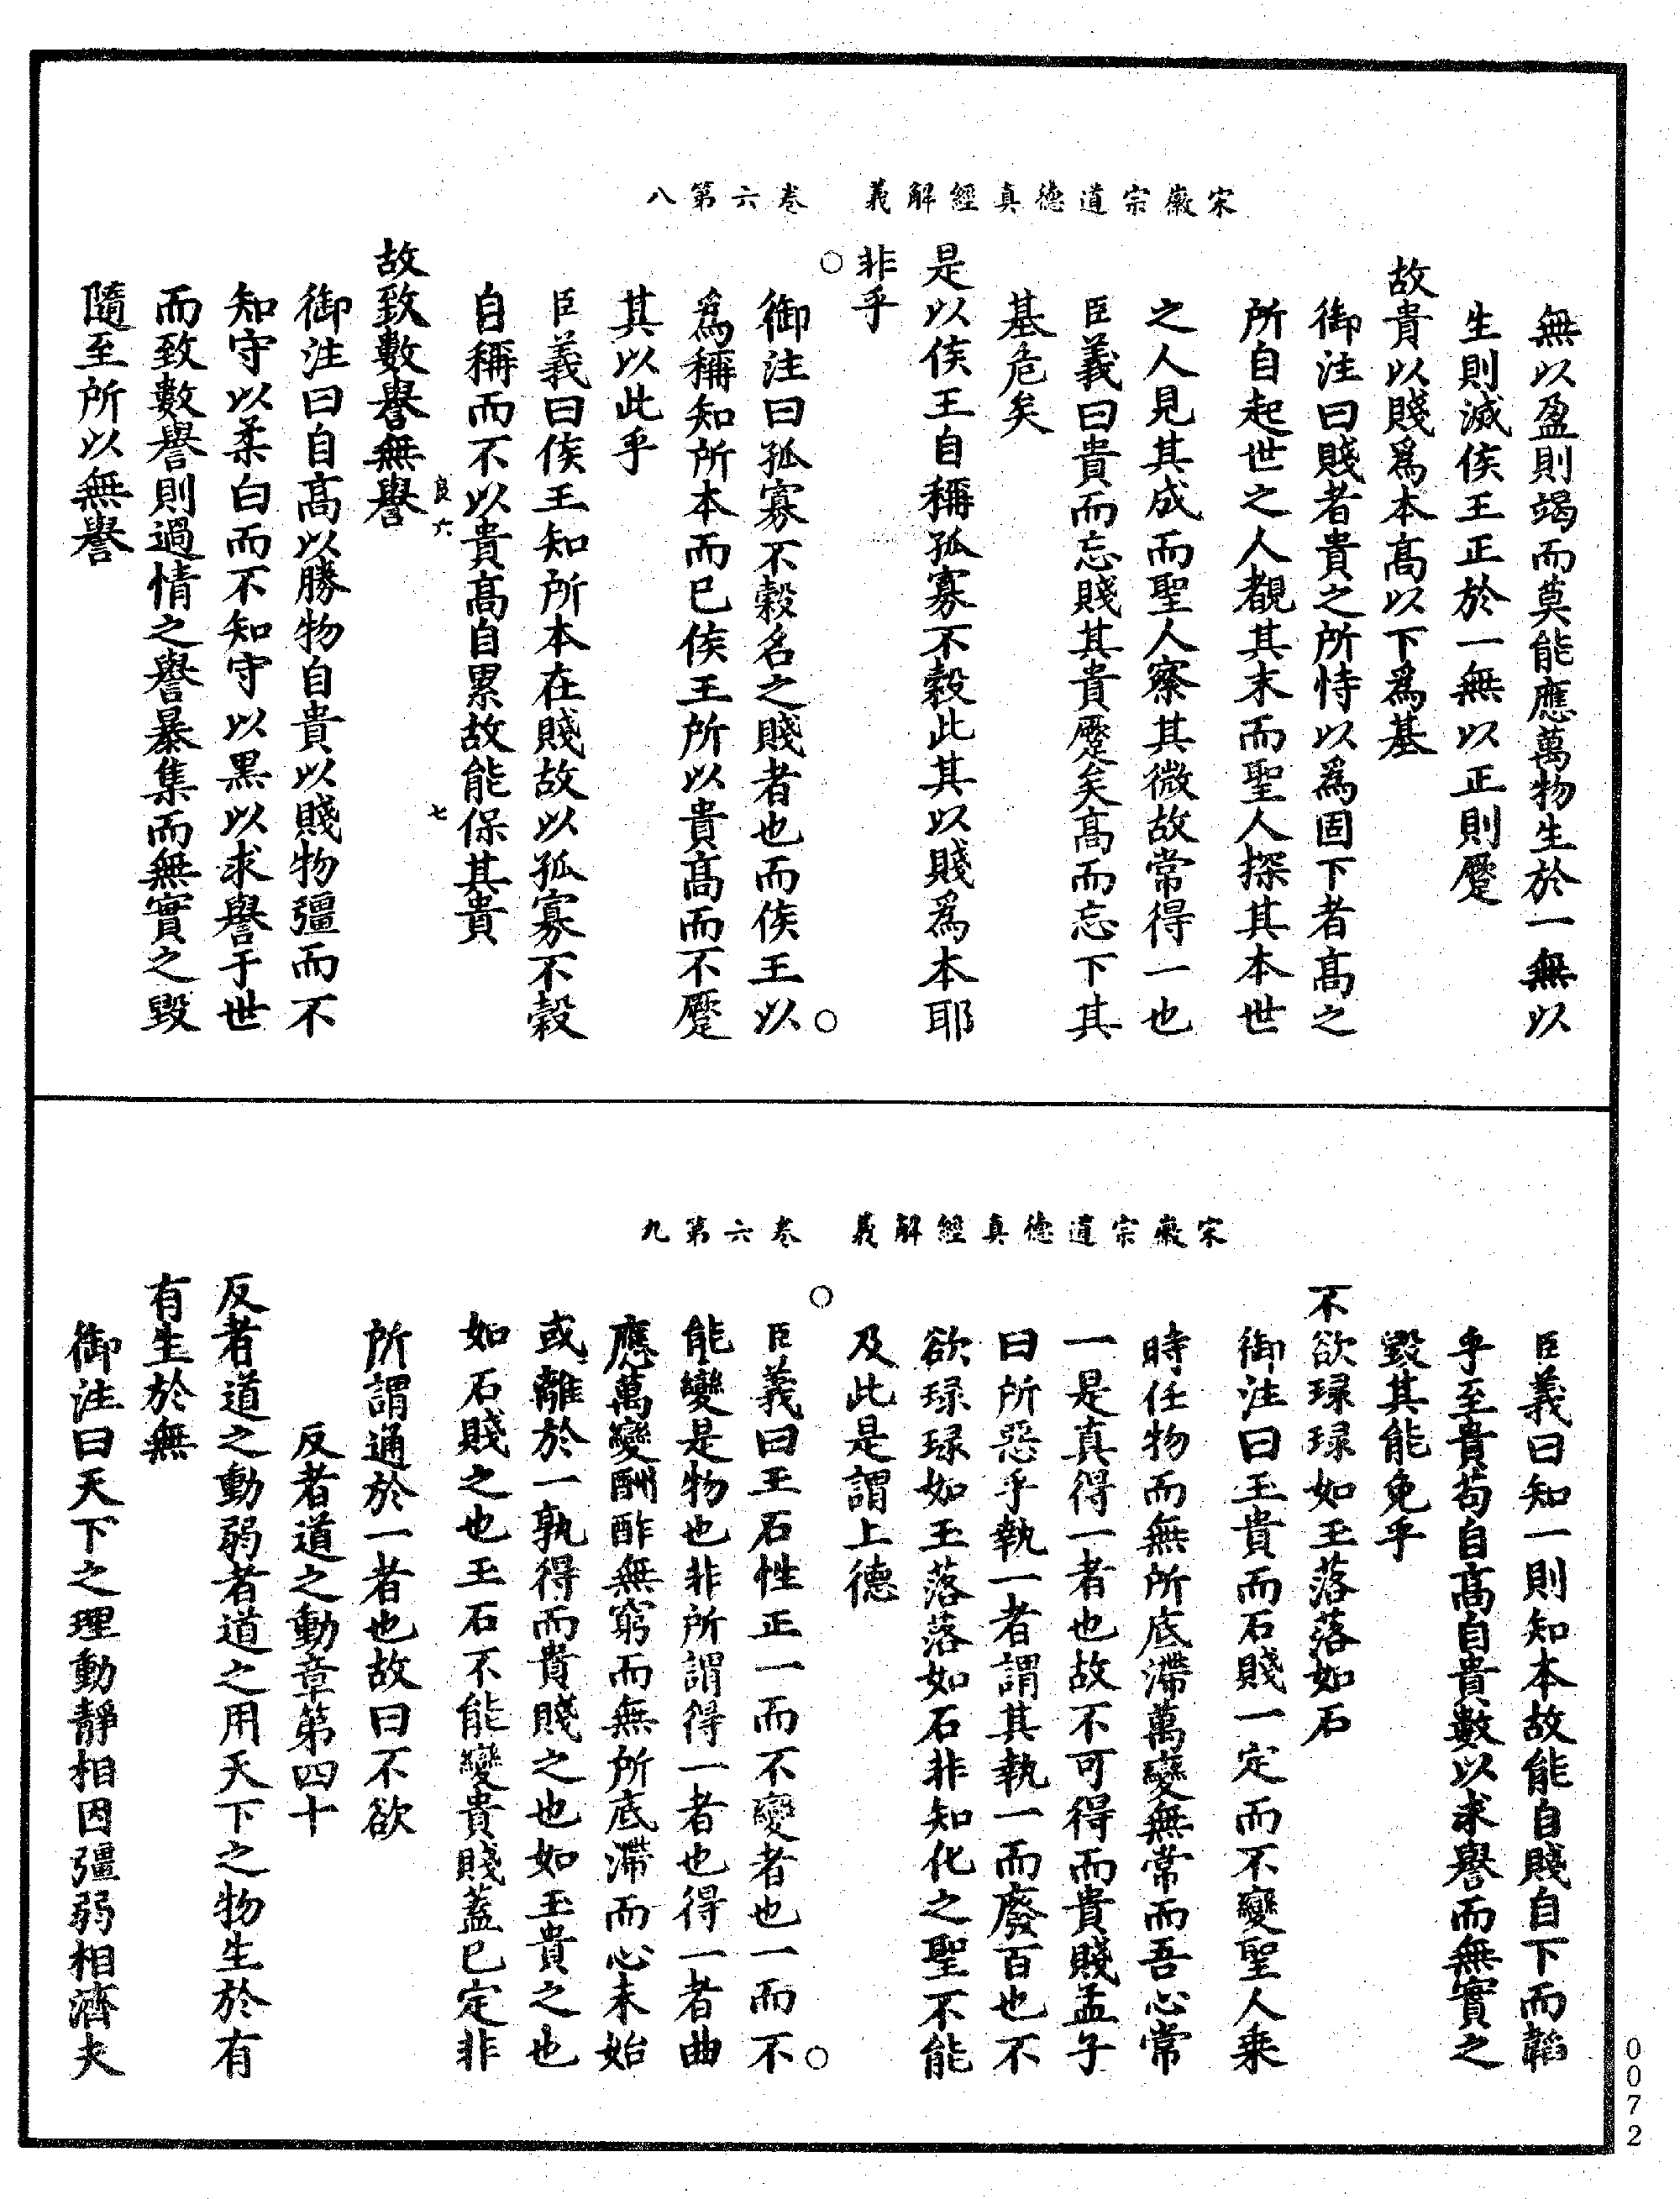 宋徽宗道德真經解義　卷六第八
無以盈則竭而莫能應萬物生於一無以
生則滅侯王正於一無以正則蹷
故貴以賤爲本高以下爲基
御注曰賤者貴之所恃以爲固下者高之
所自起世之人覩其末而聖人探其本世
之人見其成而聖人察其微故常得一也
臣義曰貴而忘賤其貴蹷矣高而忘下其
基危矣
是以侯王自稱孤寡不穀此其以賤爲本耶
非乎
御注曰孤寡不穀名之賤者也而侯王以
爲稱知所本而已侯王所以貴高而不蹷
其以此乎
臣義曰侯王知所本在賤故以孤寡不穀
自稱而不以貴高自累故能保其貴
良六　七
故致數譽無譽
御注曰自高以勝物自貴以賤物彊而不
知守以柔白而不知守以黑以求譽于世
而致數譽則過情之譽暴集而無實之毀
隨至所以無譽
宋徽宗道德真經解義　卷六第九
臣義曰知一則知本故能自賤自下而韜
乎至貴苟自高自貴數以求譽而無實之
毀其能免乎
不欲琭琭如玉落落如石
御注曰玉貴而石賤一定而不變聖人乗
時任物而無所底滯萬變無常而吾心常
一是真得一者也故不可得而貴賤孟子
曰所惡乎執一者謂其執一而廢百也不
欲琭琭如玉落落如石非知化之聖不能
及此是謂上德
臣義曰玉石性正一而不變者也一而不
能變是物也非所謂得一者也得一者曲
應萬變酬酢無窮而無所底滯而心未始
或離於一孰得而貴賤之也如玉貴之也
如石賤之也玉石不能變貴賤蓋已定非
所謂通於一者也故曰不欲
反者道之動章第四十
反者道之動弱者道之用天下之物生於有
有生於無
御注曰天下之理動靜相因彊弱相濟夫
0072